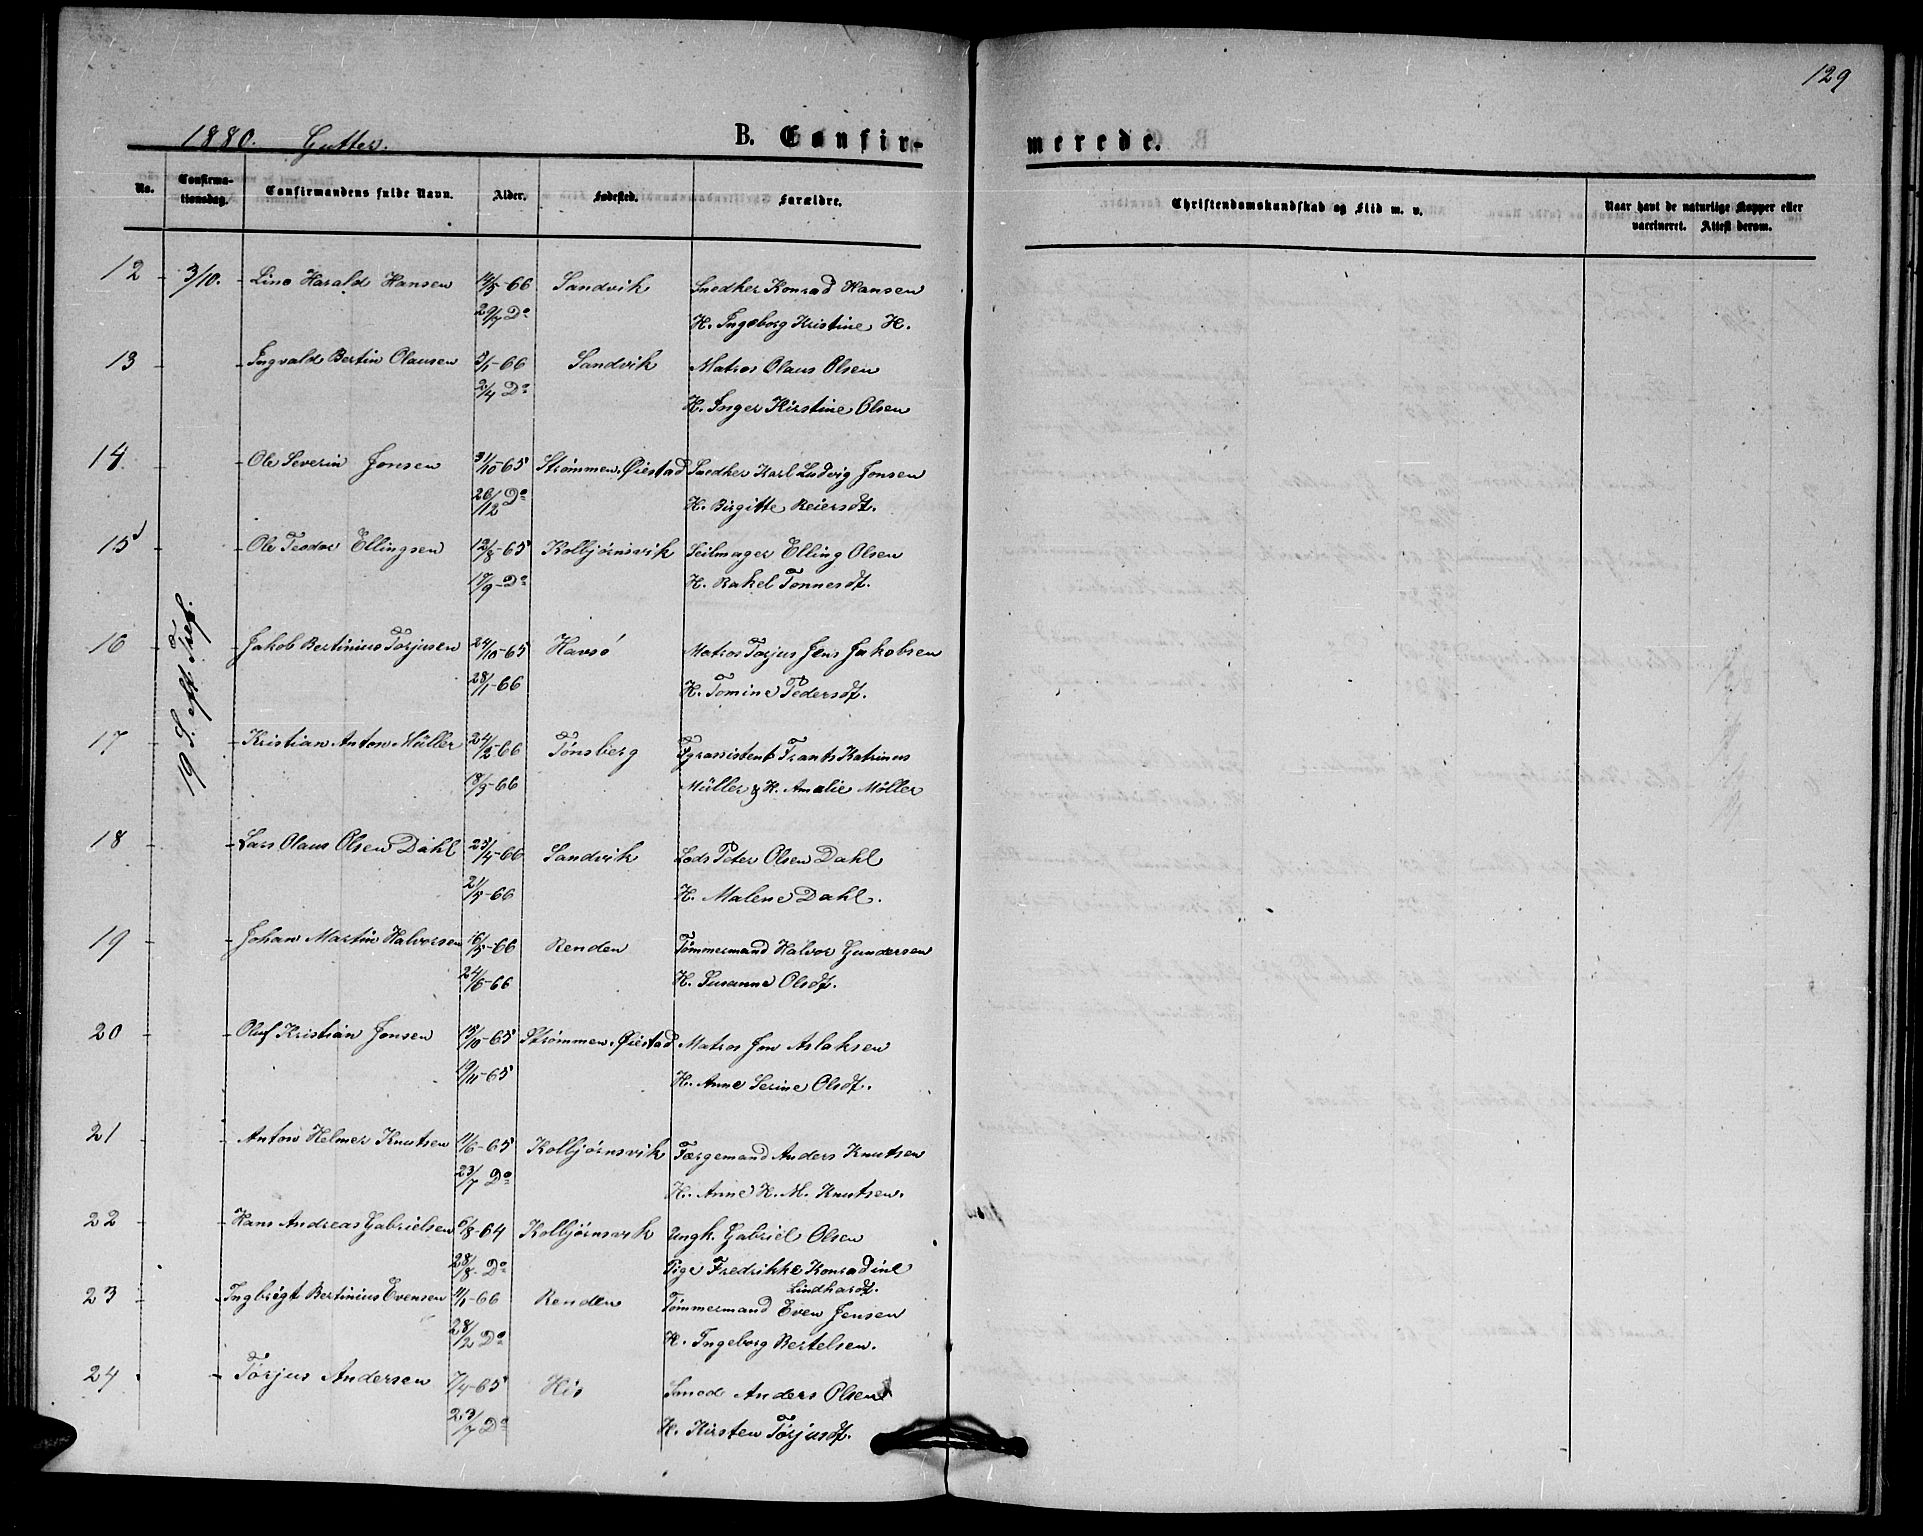 129
1880. Gutter. B. Confir-
merede.
No. Confirma-tionsdag. Confirmandens fulde Navn. Alder. Fødested. Forældre.
Christendomskundskab og Flid m. v. Naar havt de naturlige Kopper eller vaccineret. Attest derom.
12 3/10. Lino Harald Hansen 14/5-66 Sandvik Snedker Konrad Hansen
29/7 Do H. Ingeborg Kristine H.
13 Ingvald Bertin Olausen 3/1-66 Sandvik Matros Olaus Olsen
2/4 Do H. Inger Kirstine Olsen
14 Ole Severin Jonsen 31/10-65 Strømmen, Øiestad Snedker Karl Ludvig Jonsen
26/12 Do H. Birgitte Reiersdt.
15 Ole Teodor Ellingsen 12/8-65 Kolbjørnsvik Seilmager Elling Olsen
17/9-Do H. Rakel Tonnesdt.
19 S. eft. Tref.
16 Jakob Bertinius Torjusen 24/10-65 Havsø Matros Torjus Jens Jakobsen
28/1-66 H. Tomine Pedersdt.
17 Kristian Anton Müller 24/2-66 Tønsberg Fyrassistent Frants Katrinus
18/5-66 Müller & H. Amalie Möller
18 Lars Olaus Olsen Dahl 23/4-66 Sandvik Lods Peter Olsen Dahl
21/5-66 H. Malene Dahl.
19 Johan Martin Halvorsen 16/5-66 Renden Tømmermand Halvor Gundersen
24/6-66 H. Susanne Olsdt.
20 Oluf Kristian Jonsen 15/10-65 Strømmen, Øiestad Matros Jon Aslaksen
19/11-65 H. Anne Serine Olsdt.
21 Anton Helmer Knutsen 11/6-65 Kolbjørnsvik Færgemand Anders Knutsen
23/7 Do H. Anne K. M. Knutsen.
22 Hans Andreas Gabrielsen 6/8-64 Kolbjørnsvik Ungk. Gabriel Olsen
28/8- Do Pige Fredrikke Konradine
Lindhardt.
23 Ingbrigt Bertinius Evensen 11/1-66 Renden Tømmermand Even Jensen
28/2 Do H. Ingeborg Bertelsen.
24 Torjus Andersen 7/4-65 His Smed Anders Olsen
23/7 Do H. Kirsten Torjusdt.